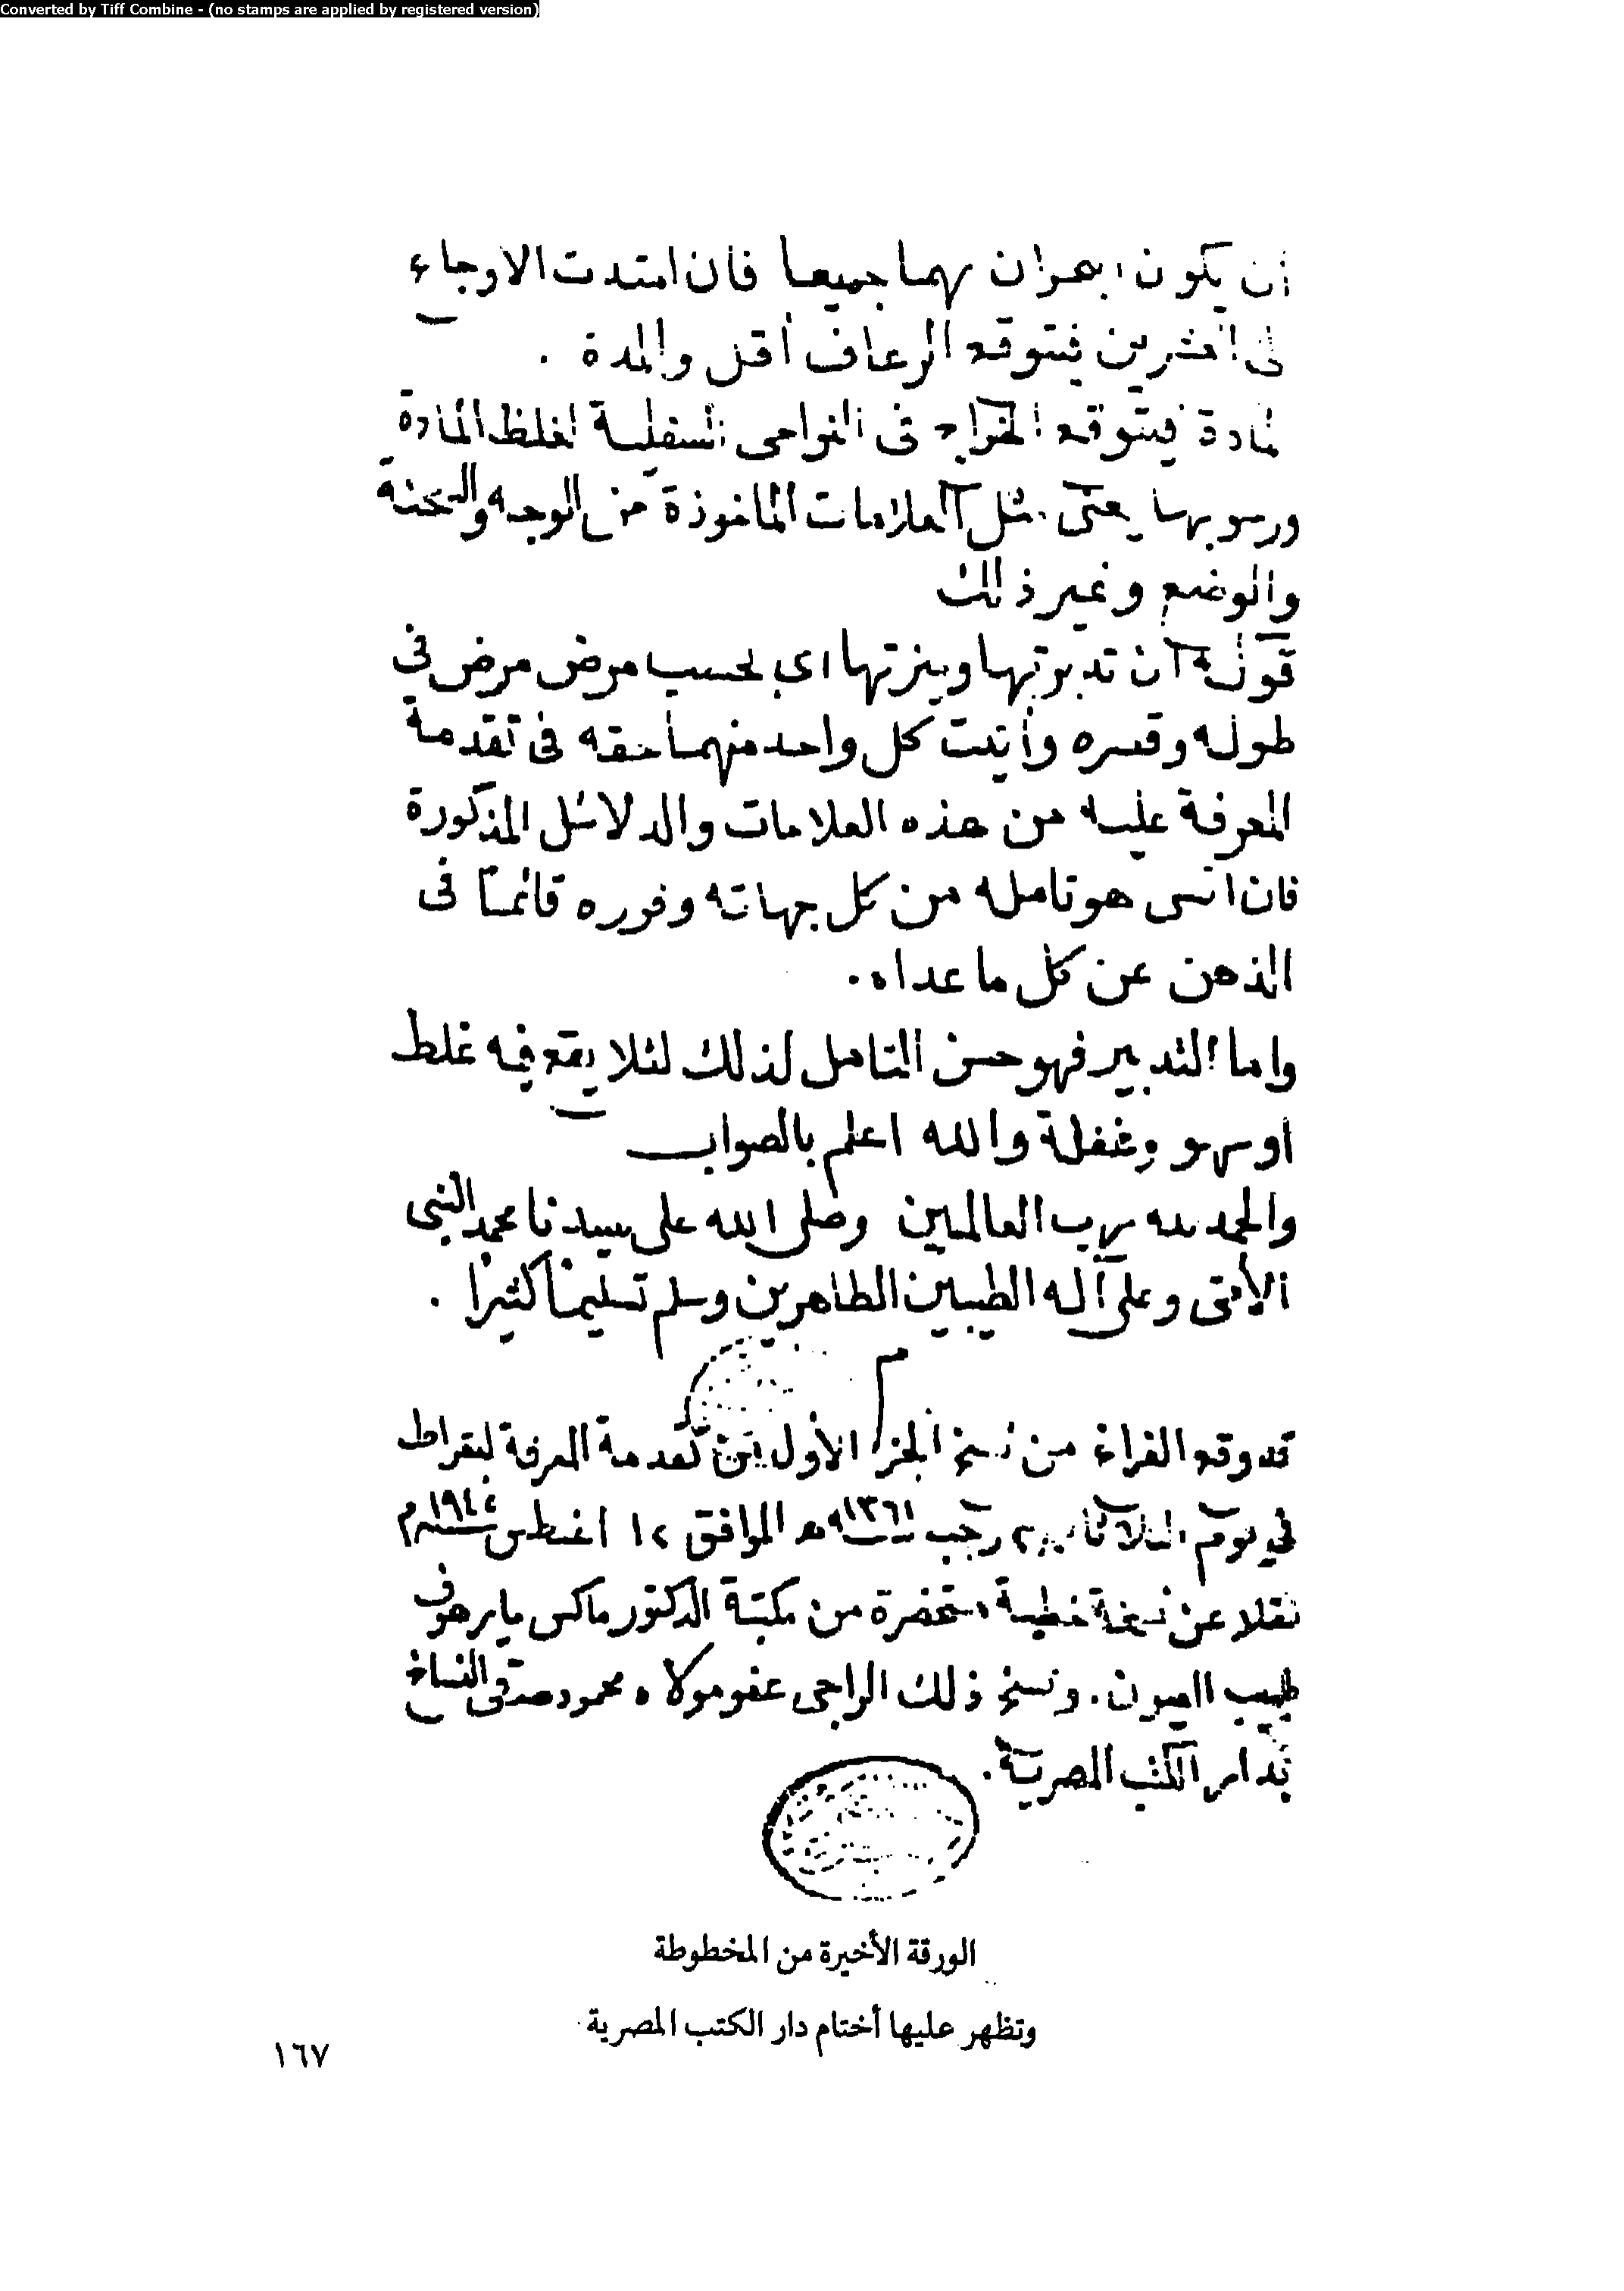 Converted by Tiff Combine - (no stamps are applied by registered version)
أن يكون البحران بهما جميعا فان امتدت الاوجاء
فى العشرين فيتوقع الرعاف أقل والمدة .
لمادة فيتوقع الخراج فى النواحى السفلية لغلظ المادة
ورسوبها يعنى مثل العلامات المأخوذة من الوجه والسحنة
والوضع وغير ذلك
قوله أن تدبرتها وميزتها اى بحسب مرض مرض فى
طوله وقصره وأتيت كل واحد منهما حقه فى تقدمة
المعرفة عليه من هذه العلامات والدلائل المذكورة
فان هو تامله من كل جهاته وفوره قائما فى
الذهن عن كل ما عداه .
واما التدبير فهو حسن التامل لذلك لئلا يقع فيه غلط
او سهو وغفلة والله اعلم بالصواب
والحمد لله رب العالمين وصلى الله على سيدنا محمد النبى
الأمى وعلى آله الطيبين الطاهرين وسلم تسليما كثيرا .
قد وقع الفراغ من نسخ الجزء الأول من تقدمة المعرفة لبقراط
في يوم الثلاثاء رجب سنة ١٣٦١ هـ الموافق ١٢ اغسطس سنة م
نقلا عن نسخة خطية مستحضرة من مكتبة الدكتور ماكس مايرهوف
طبيب العيون . ونسخ ذلك الراجى عفو مولاه محمود صدقى النساخ
بدار الكتب المصرية .
الورقة الأخيرة من المخطوطة
وتظهر عليها أختام دار الكتب المصرية
١٦٧